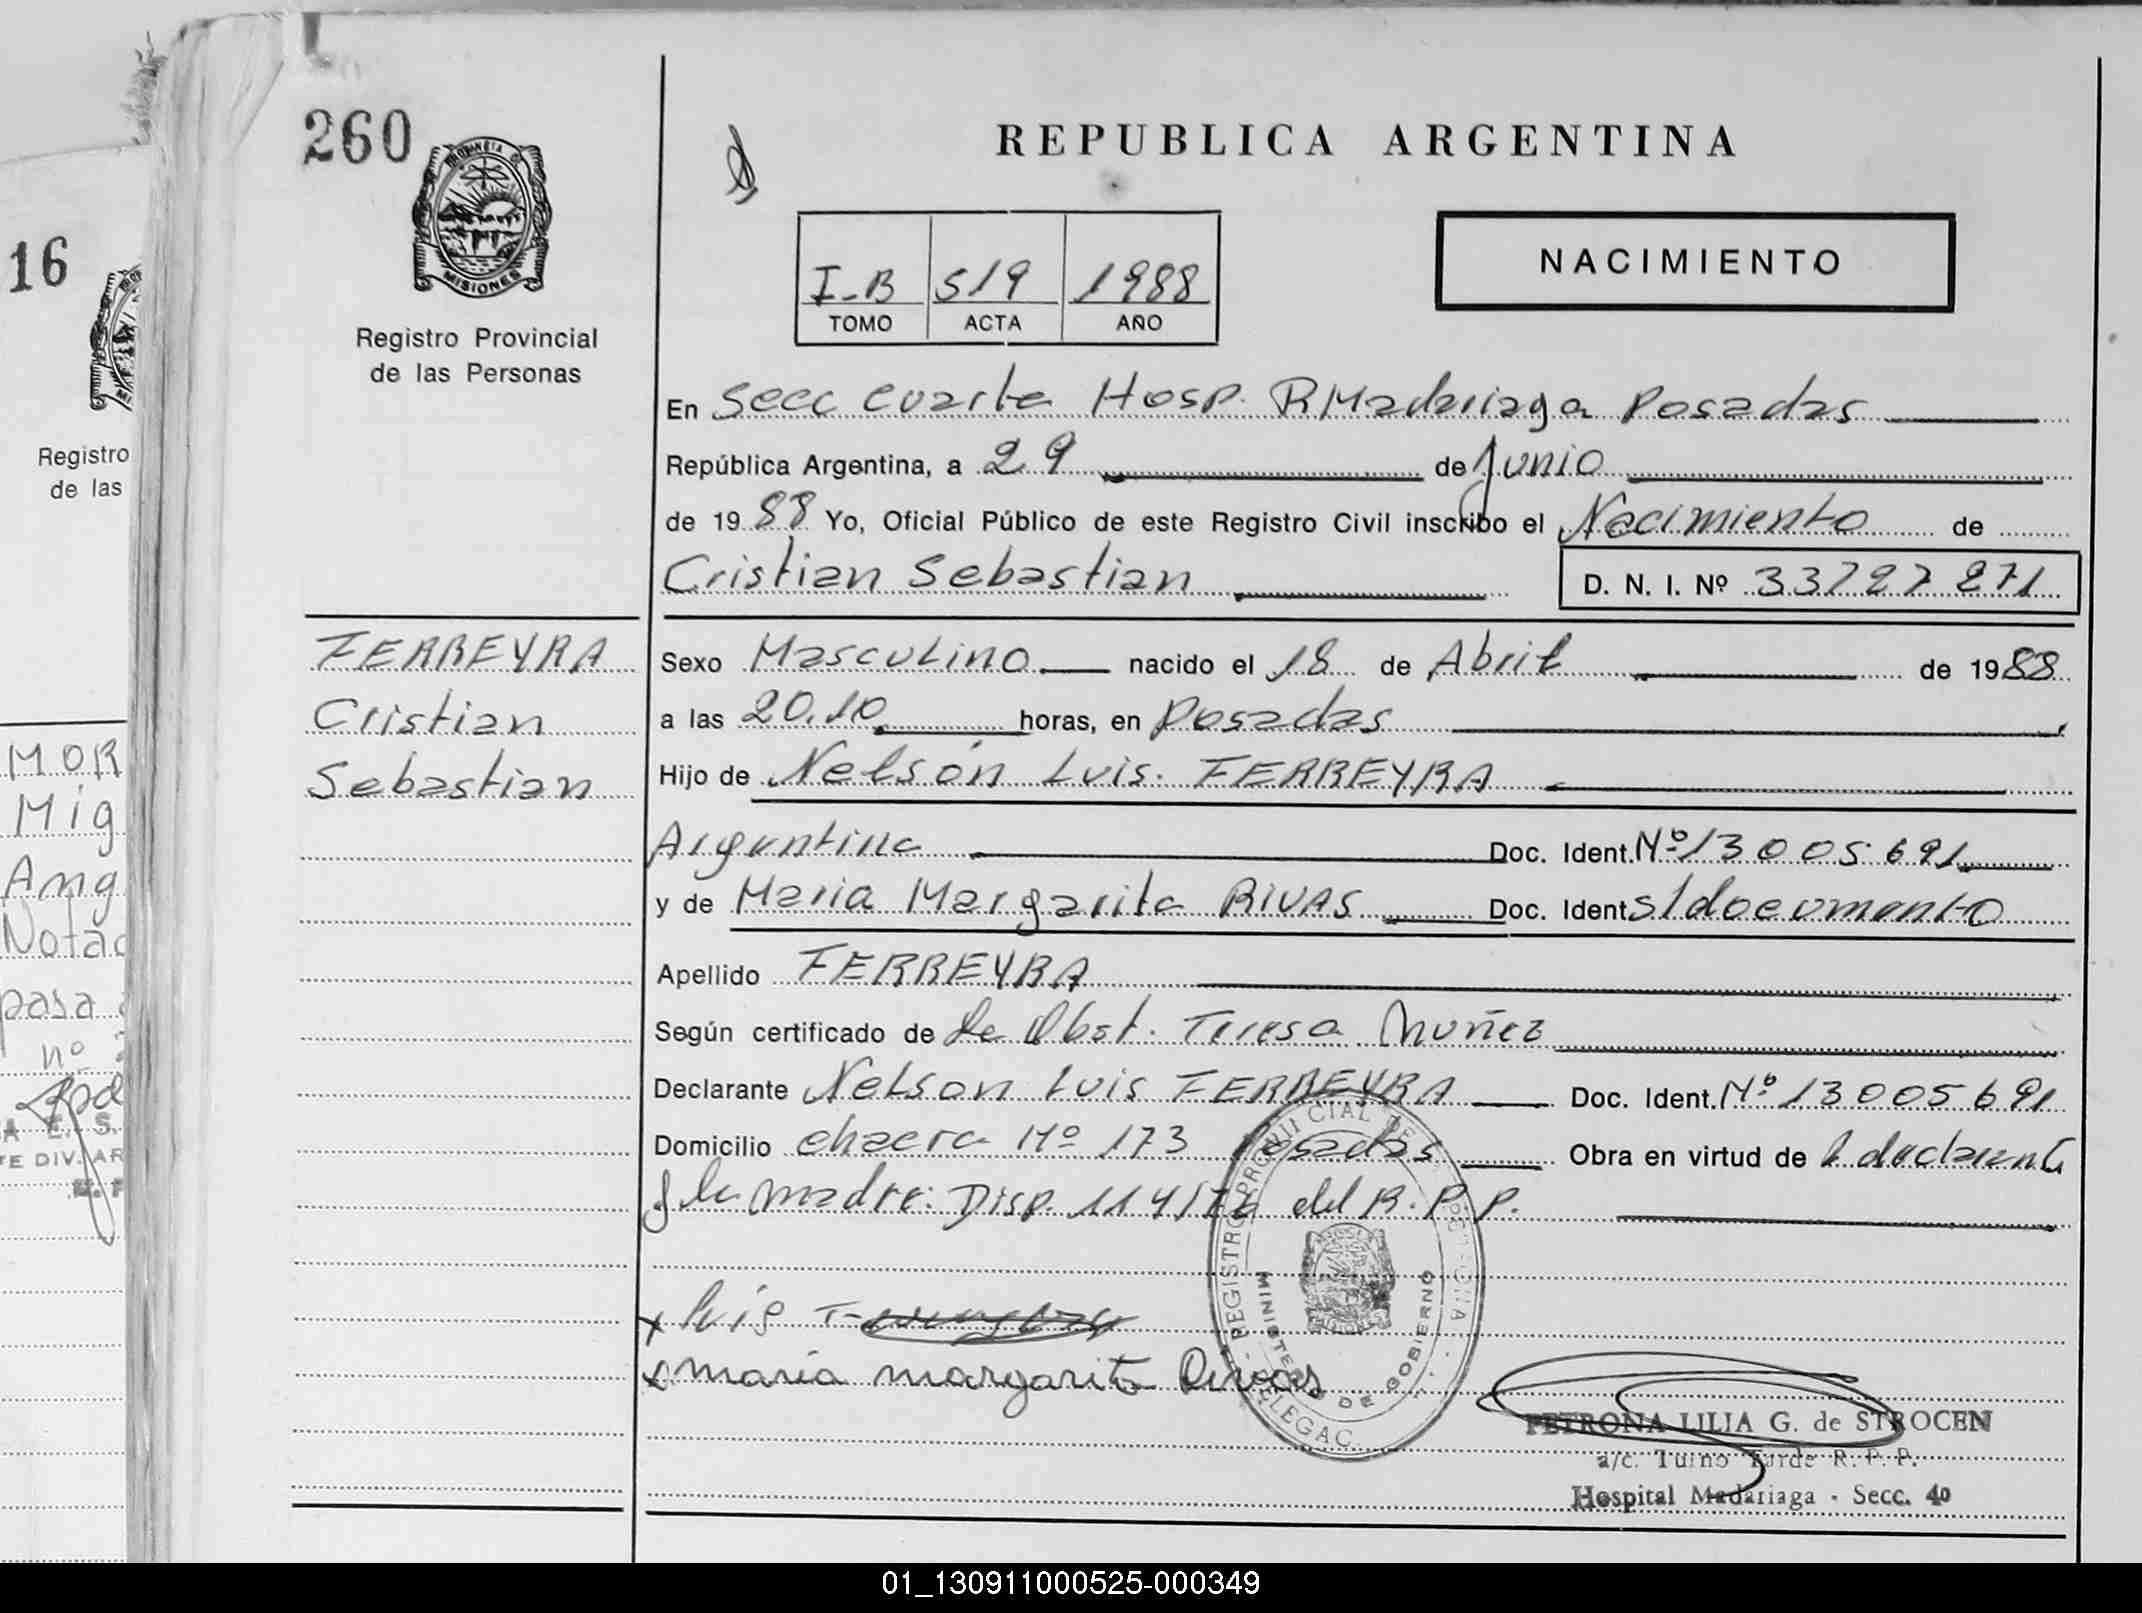 260
REPUBLICA ARGENTINA
PROVINCIA DE
MISIONES
Registro Provincial
de las Personas
I-B 519 1988
TOMO ACTA AÑO
NACIMIENTO
En Secc cuarta Hosp. R Madariaga Posadas
República Argentina, a 29 de Junio
de 1988 Yo, Oficial Público de este Registro Civil inscribo el Nacimiento de
Cristian Sebastian D. N. I. Nº 33727271
FERREYRA
Cristian
Sebastian
Sexo Masculino nacido el 18 de Abril de 1988
a las 20.10 horas, en Posadas
Hijo de Nelsón Luis. FERREYRA
Argentina Doc. Ident. Nº 13005691
y de Maria Margarita RIVAS Doc. Ident s/documento
Apellido FERREYRA
Según certificado de la Obst. Teresa Nuñez
Declarante Nelson Luis FERREYRA Doc. Ident. Nº 13005691
Domicilio chacra Nº 173 Posadas Obra en virtud de declarante
y la madre: Disp. 114/ del R.P.P.
x luis
x maria margarita Rivas
REGISTRO PROVINCIAL DE
MINISTERIO DE GOBIERNO
DELEGAC.
PETRONA LILIA G. de STROCEN
a/c. Turno Tarde R. P. P.
Hospital Madariaga - Secc. 4o
16
Registro
de las
MOR
Mig
Ang
Notac
pasa
nº
E. S.
TE DIV. AR
01_130911000525-000349